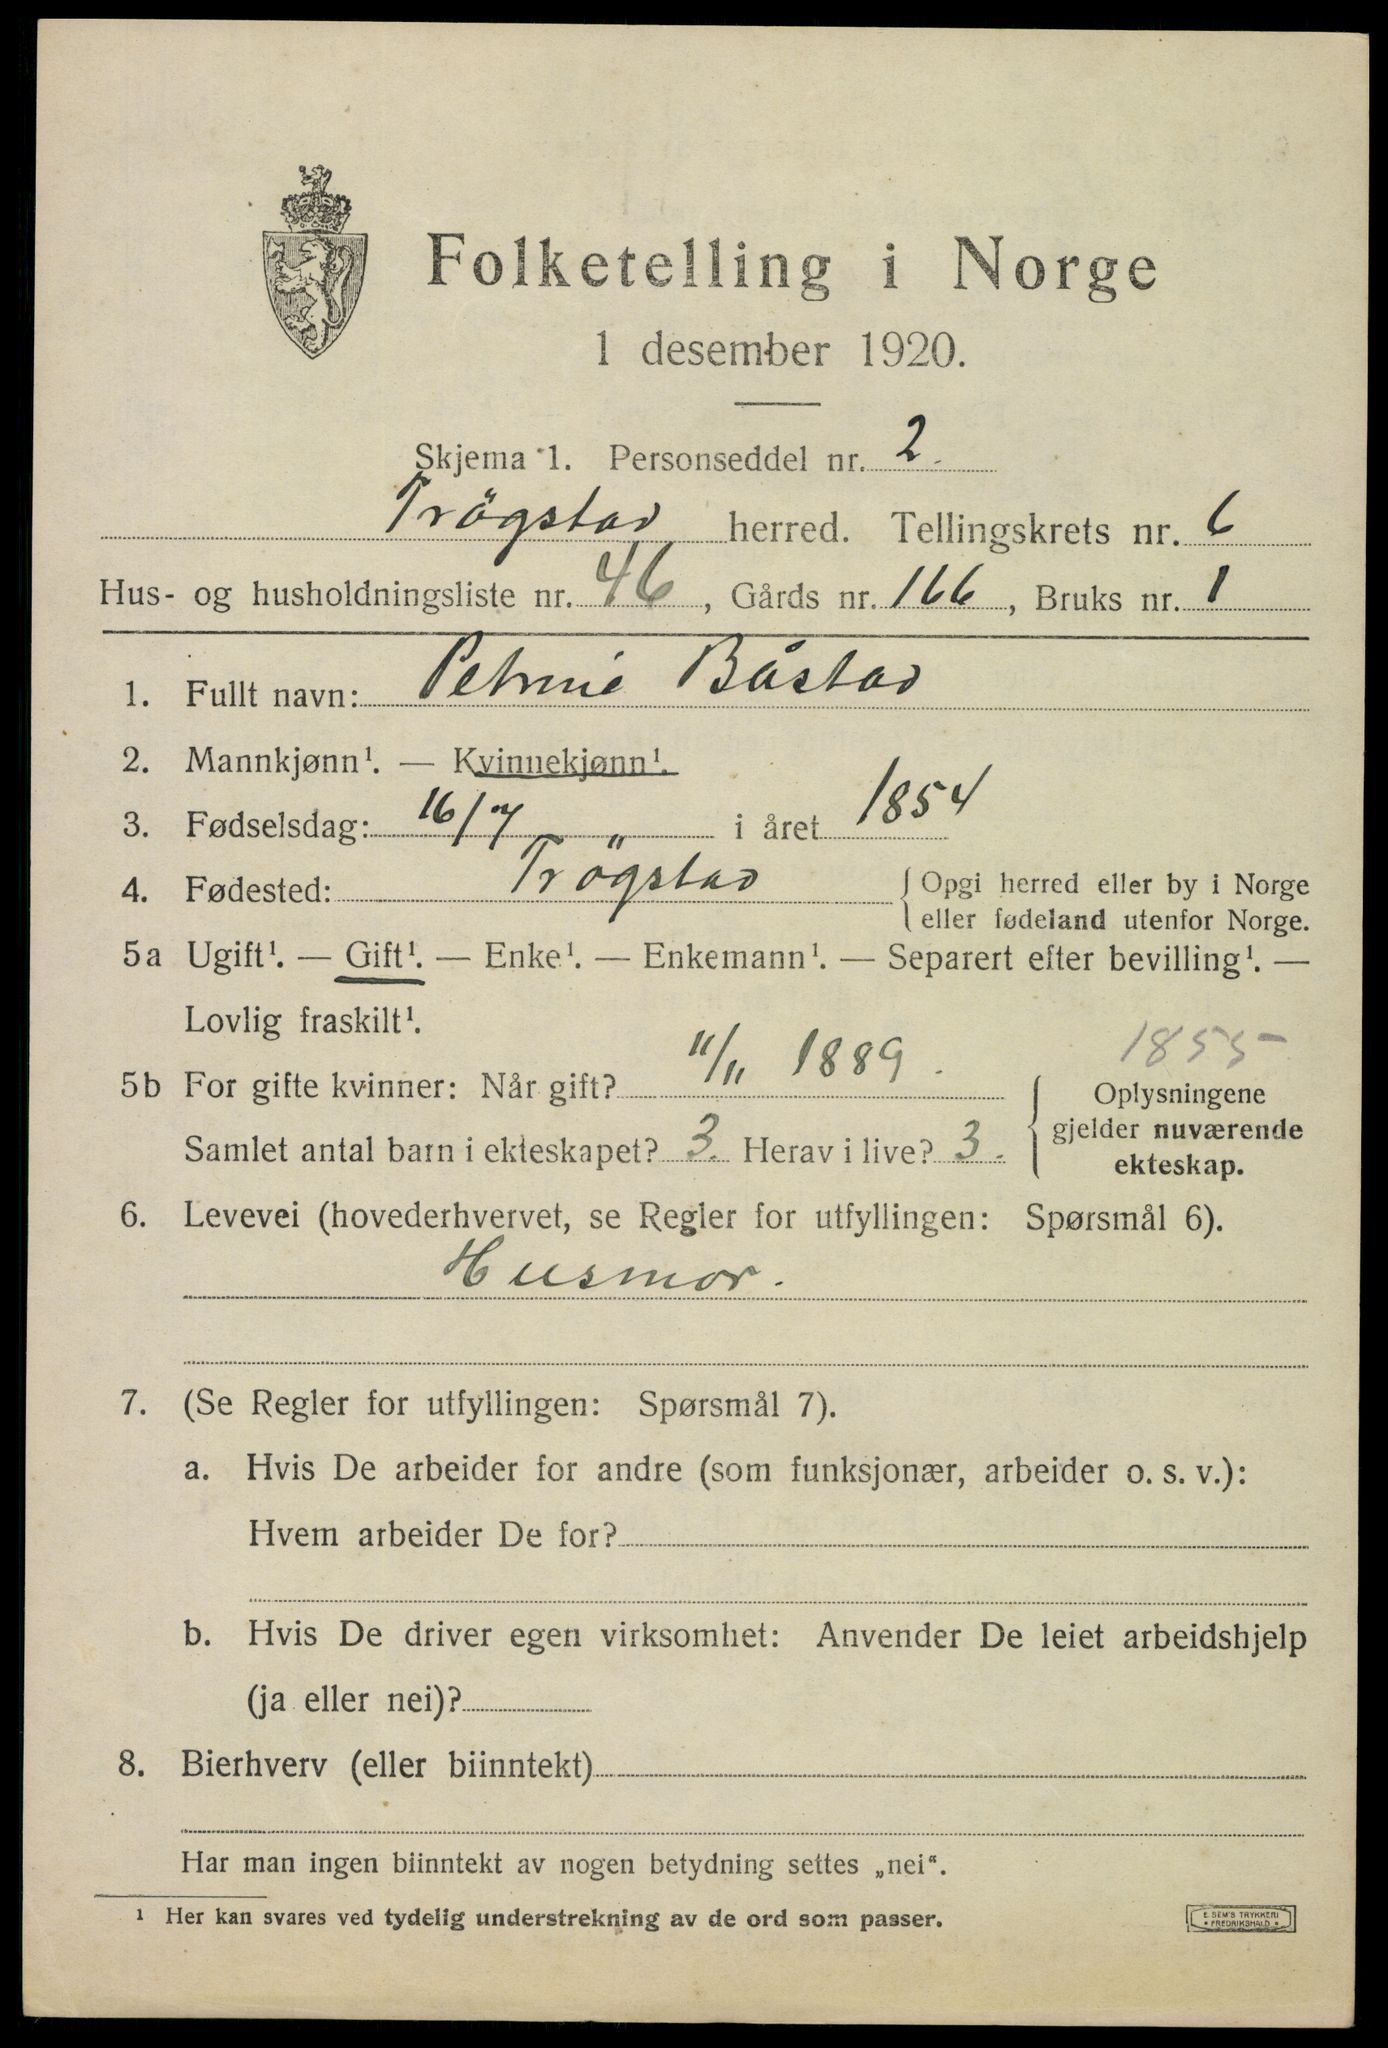 Folketelling i Norge
1 desember 1920.
Skjema 1. Personseddel nr. 2.
Trögstad herred. Tellingskrets nr. 6
Hus- og husholdningsliste nr. 46, Gårds nr. 166, Bruks nr. 1
1. Fullt navn: Petrine Båstad
2. Mannkjønn¹. — Kvinnekjønn¹.
3. Fødselsdag: 16/7 i året 1854
4. Fødested: Trögstad { Opgi herred eller by i Norge
eller fødeland utenfor Norge.
5a Ugift¹. — Gift¹. — Enke¹. — Enkemann¹. — Separert efter bevilling¹. —
Lovlig fraskilt¹.
1855
5b For gifte kvinner: Når gift? 11/11 1889. { Oplysningene
gjelder nuværende
Samlet antal barn i ekteskapet? 3. Herav i live? 3.
ekteskap.
6. Levevei (hovederhvervet, se Regler for utfyllingen: Spørsmål 6).
Husmor.
7. (Se Regler for utfyllingen: Spørsmål 7).
a. Hvis De arbeider for andre (som funksjonær, arbeider o. s. v.):
Hvem arbeider De for?
b. Hvis De driver egen virksomhet: Anvender De leiet arbeidshjelp
(ja eller nei)?
8. Bierhverv (eller biinntekt)
Har man ingen biinntekt av nogen betydning settes „nei“.
¹ Her kan svares ved tydelig understrekning av de ord som passer.
E. SEM'S TRYKKERI
• FREDRIKSHALD •